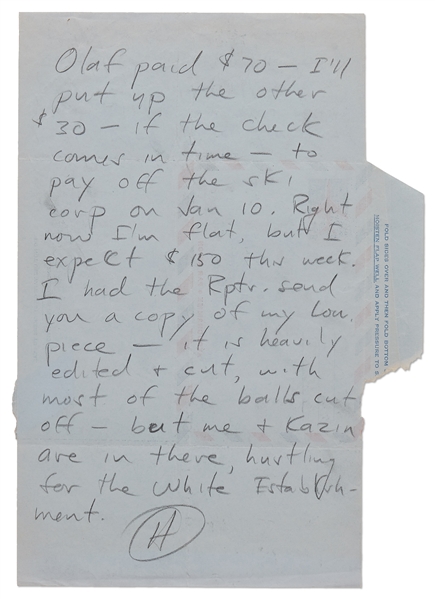 Olaf paid $70 — I'll
put up the other
$30 — if the check
comes in time — to
pay off the ski
corp on Jan 10. Right
now I'm flat, but I
expect $150 this week.
I had the Rptr. send
you a copy of my Lou.
piece — it is heavily
edited + cut, with
most of the balls cut
off — but me + Kazin
are in there, hustling
for the White Establish-
ment.
H
FOLD SIDES OVER AND THEN FOLD BOTTOM
MOISTEN FLAP WELL AND APPLY PRESSURE TO S